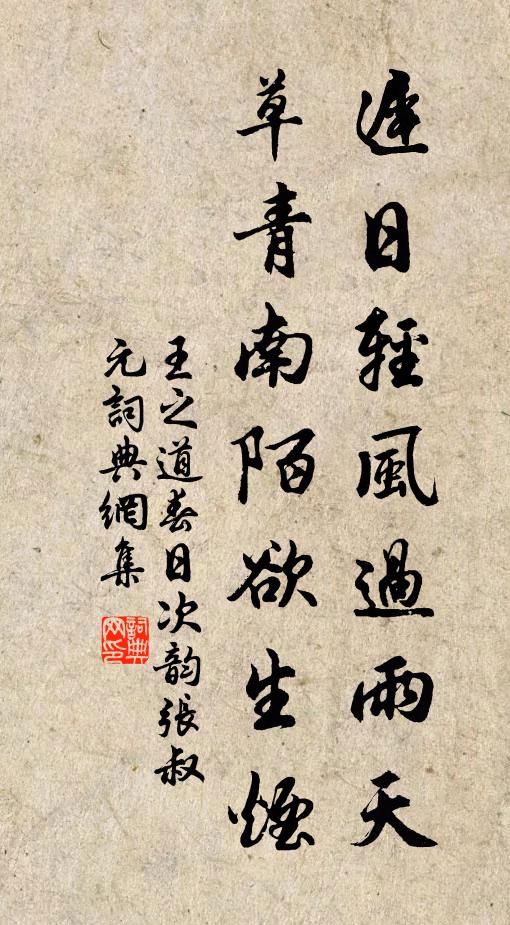 遲日輕風過雨天
草青南陌欲生煙
王之道春日次韵張叔
元詞典網集
詞典網印